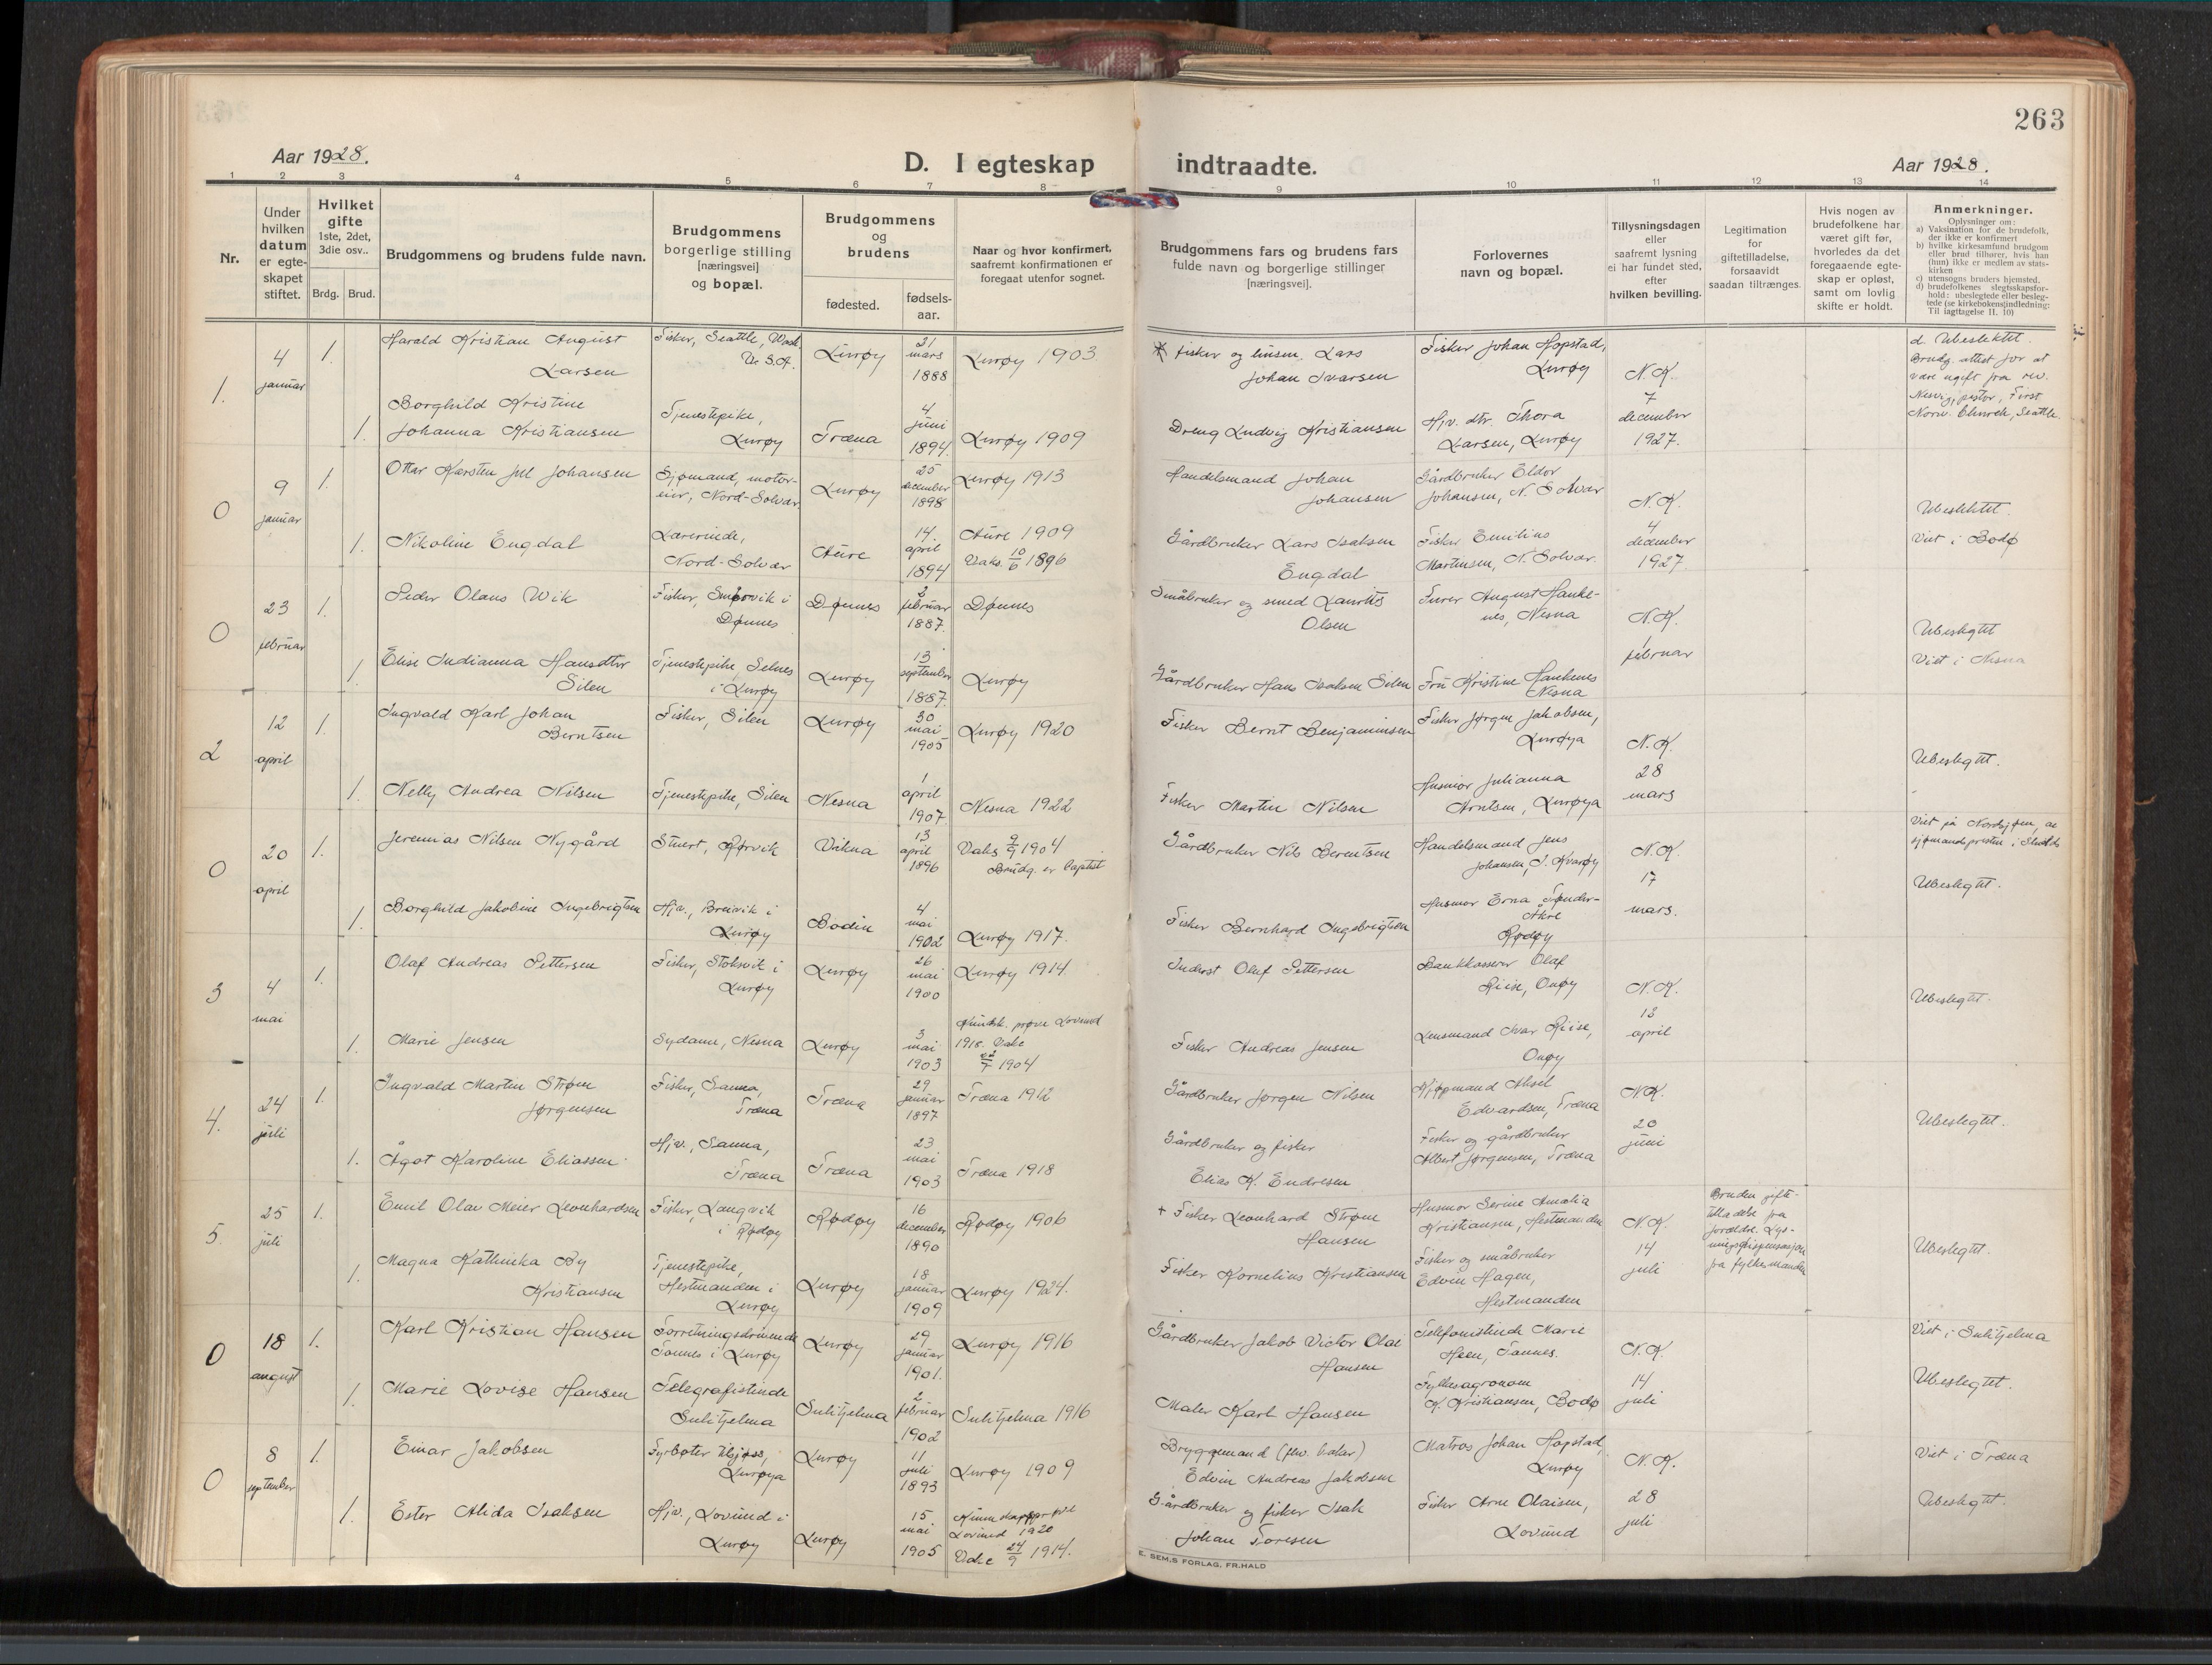 263
Aar 1928.
D. I egteskap indtraadte.
Aar 1928.
1 2 3 4 5 6 7 8 9 10 11 12 13 14
Nr.
Under hvilken datum er egteskapet stiftet.
Hvilket gifte 1ste, 2det, 3die osv..
Brdg. Brud.
Brudgommens og brudens fulde navn.
Brudgommens borgerlige stilling [næringsvei] og bopæl.
Brudgommens og brudens
fødested.
fødselsaar.
Naar og hvor konfirmert, saafremt konfirmationen er foregaat utenfor sognet.
Brudgommens fars og brudens fars fulde navn og borgerlige stillinger [næringsvei].
Forlovernes navn og bopæl.
Tillysningsdagen eller saafremt lysning ei har fundet sted, efter hvilken bevilling.
Legitimation for giftetilladelse, forsaavidt saadan tiltrænges.
Hvis nogen av brudefolkene har været gift før, hvorledes da det foregaaende egteskap er opløst, samt om lovlig skifte er holdt.
Anmerkninger.
Oplysninger om:
a) Vaksination for de brudefolk, der ikke er konfirmert
b) hvilke kirkesamfund brudgom eller brud tilhører, hvis han (hun) ikke er medlem av statskirken
c) utensogns bruders hjemsted.
d) brudefolkenes slegtsskapsforhold: ubeslegtede eller beslegtede (se kirkebokensjindledning: Til iagttagelse II. 10)
1. 4 januar 1. Harald Kristian August Larsen
Fisker, Seattle, Wash. U.S.A. Lurøy 21 mars 1888 Lurøy 1903
Fisker og linsem. Lars Johan Ivarsen
Fisker Johan Hopstad, Lurøy
N.K. 7 december 1927.
d. Ubeslektet.
Brudg. attest for at være ugift fra rev. pastor, First Norw. Church, Seattle.
1. Borghild Kristine Johanna Kristiansen
Tjenestepike, Lurøy Træna 4 juni 1894. Lurøy 1909
Dreng Ludvig Kristiansen
Hjv. dtr. Thora Larsen, Lurøy
0 9 januar 1. Ottar Karsten Juel Johansen
Sjømand, motoreier, Nord-Solvær. Lurøy 25 december 1898 Lurøy 1913
Handelsmand Johan Johansen
Gårdbruker Eldor Johansen, N. Solvær
N.K. 4 december 1927.
Ubeslektet.
Viet i Bodø
1. Nikoline Engdal
Lærerinde, Nord-Solvær Aure 14. april 1894 Aure 1909 Vaks. 10/6 1896
Gårdbruker Lars Isaksen Engdal
Fisker Emilius Martinsen, N. Solvær.
0 23 februar 1. Peder Olaus Wik
Fisker, i Dønnes Dønnes 2 februar 1887. Dønnes
Småbruker og smed Laurits Olsen
Furer August Hankenes, Nesna
N.K. 1 februar
Ubeslegtet
Viet i Nesna
1. Elise Indianna Hansdtr Silen
Tjenestepike Selnes i Lurøy Lurøy 13 september 1887. Lurøy
Gårdbruker Hans Isaksen Silen
Fru Kristine Hankenes Nesna
2 12 april 1. Ingvald Karl Johan Berntsen
Fisker, Silen Lurøy 30 mai 1905 Lurøy 1920
Fisker Bernt Benjaminsen
Fisker Jørgen Jakobsen, Lurøya
N.K. 28 mars
Ubeslegtet.
1. Nelly Andrea Nilsen
Tjenestepike, Silen Nesna 1 april 1907. Nesna 1922
Fisker Martin Nilsen
Husmor Julianna Arntsen, Lurøya
0 20 april 1. Jeremias Nilsen Nygård
Stuert, Rørvik Vikna 13 april 1896 Vaks 9/9 1904 Brudg. er baptist
Gårdbruker Nils Berentsen
Handelsmand Jens Johansen, I. Kvarøy
N.K. 17 mars.
Viet på Nordsjøen, av sjømandspresten i Shields
Ubeslegtet.
1. Borghild Jakobine Ingebrigtsen
Hjv., Breivik i Lurøy Bodin 4 mai 1902 Lurøy 1917.
Fisker Bernhard Ingebrigtsen
Husmor Erna Sønder-Åkre Rødøy
3 4 mai 1. Olaf Andreas Pettersen
Fisker, Stoksvik i Lurøy Lurøy 26 mai 1900 Lurøy 1914.
Inderst Oluf Pettersen
Bankkasserer Olaf Riise, Onøy
N.K. 13 april
Ubeslegtet.
1. Marie Jensen
Sydame, Nesna Lurøy 3 mai 1903 Kundsk. prøve Lovund 1918. Vaks 1904
Fisker Andreas Jensen
Lensmand Ivar Riise, Onøy
4. 24 juli 1. Ingvald Martin Strøm Jørgensen
Fisker, Sanna, Træna Træna 29 januar 1897 Træna 1912
Gårdbruker Jørgen Nilsen
Kjøpmand Aksel Edvardsen, Træna
N.K. 20 juni
Ubeslegtet.
1. Ågot Karoline Eliassen
Hjv., Sanna, Træna Træna 23 mai 1903 Træna 1918
Gårdbruker og fisker Elias K. Endresen
Fisker og gårdbruker Albert Jørgensen, Træna
5. 25 juli 1. Emil Olav Meier Leonhardsen
Fisker, Langvik i Rødøy Rødøy 16 december 1890 Rødøy 1906
+ Fisker Leonhard Strøm Hansen
Husmor Serine Amalia Kristiansen, Hestmanden
N.K. 14 juli
Bruden giftetilladelse fra foreldre. Lysningsdispensasjon fra fylkesmanden
Ubeslegtet.
1. Magna Kathinka By Kristiansen
Tjenestepike, Hestmanden i Lurøy Lurøy 18 januar 1909 Lurøy 1924.
Fisker Kornelius Kristiansen
Fisker og småbruker Edvin Hagen, Hestmanden
0 18 august 1. Karl Kristian Hansen
Forretningsdrivende Tonnes i Lurøy Lurøy 29 januar 1901. Lurøy 1916
Gårdbruker Jakob Victor Olai Hansen
Telefonistinde Marie Heen, Tonnes.
N.K. 14 juli
Viet i Sulitjelma
Ubeslegtet.
1. Marie Lovise Hansen
Telegrafistinde Sulitjelma Sulitjelma 2 februar 1902 Sulitjelma 1916
Maler Karl Hansen
Fylkesagronom K. Kristiansen, Bodø
0 8 september 1. Einar Jakobsen
Fyrbøter tilsjøss, Lurøya Lurøy 11 juli 1893 Lurøy 1909
Bryggemand Edvin Andreas Jakobsen
Matros Johan Hopstad, Lurøy
N.K. 28 juli
Viet i Træna
Ubeslegtet.
1. Ester Alida Isaksen
Hjv., Lovund i Lurøy Lurøy 15 mai 1905 Kunnskapsprøve Lovund 1920 Vaks 24/9 1914.
Gårdbruker og fisker Isak Johan Toresen
Fisker Arne Olaisen, Lovund
E. SEM;S FORLAG, FR.HALD